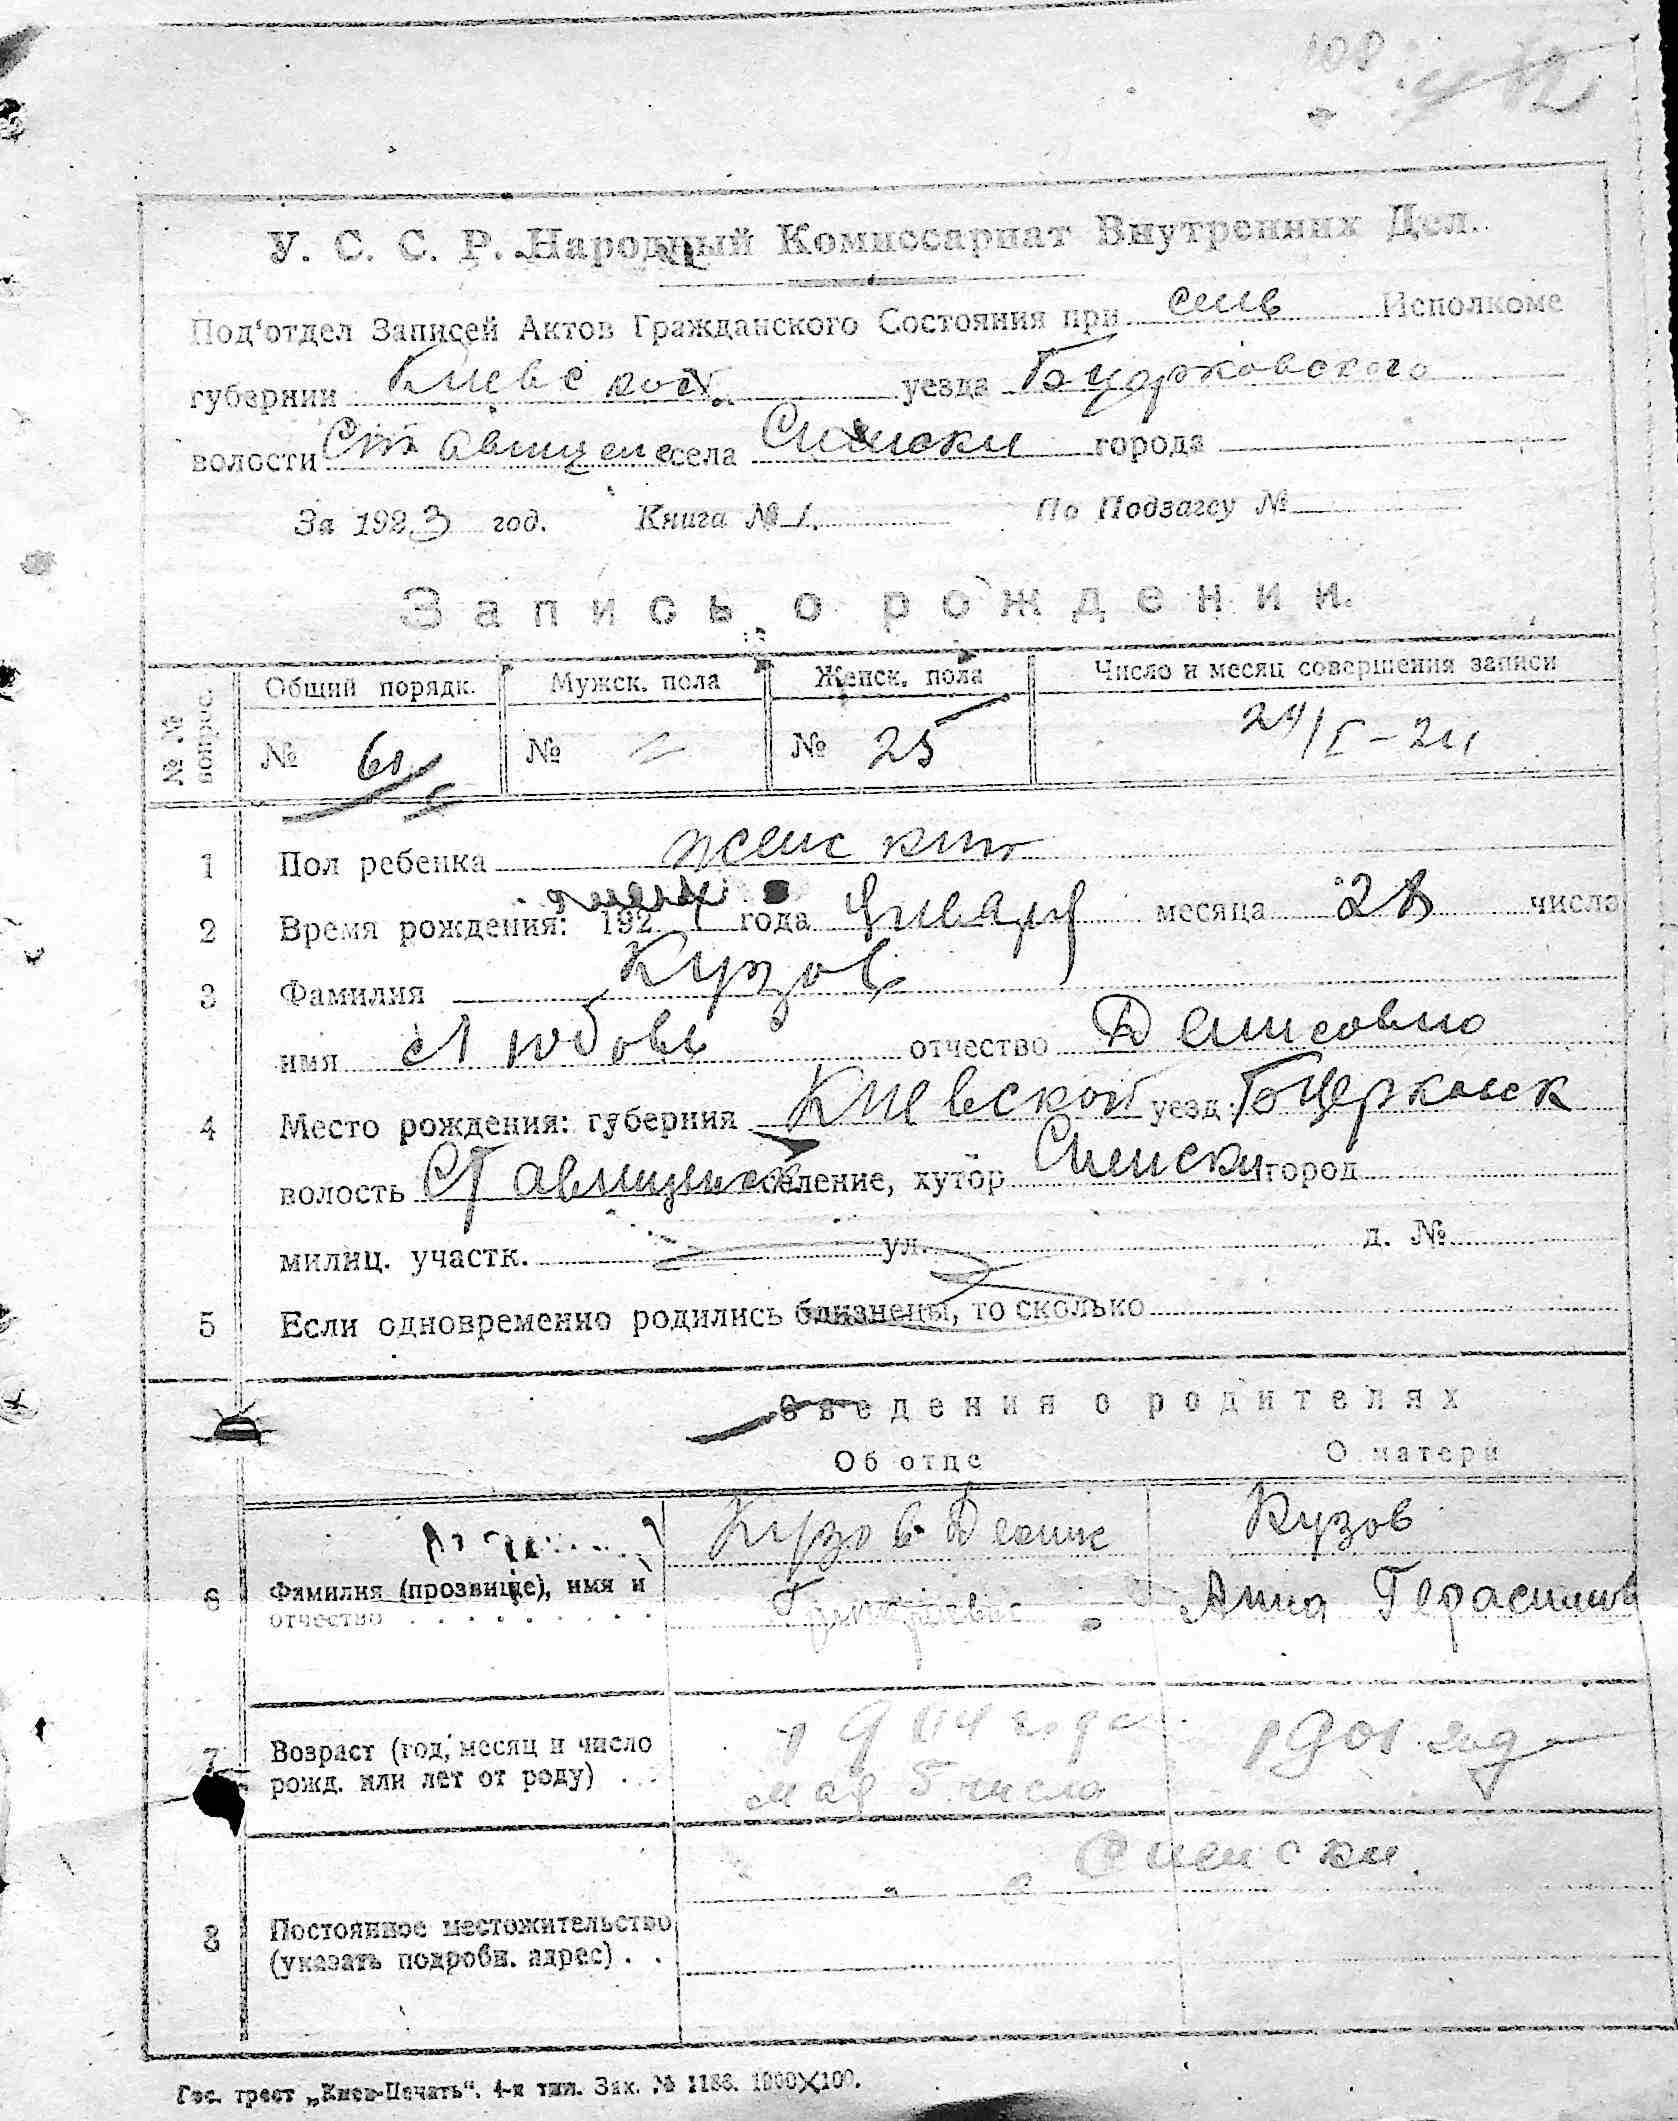 108
У. С. С. Р. Народный Комиссариат Внутренних Дел.
Под'отдел Записей Актов Гражданского Состояния при Исполкоме
губернии Киевской уезда Бцерковского
волости Ставищен села города
За 1923 год. Книга № 1. По Подзагсу №
Запись о рождении.
№ № вопрос. Общий порядк. Мужск. пола Женск. пола Число и месяц совершения записи
№ № № 25 24/I-24
1 Пол ребенка женский
2 Время рождения: 192 года Января месяца 28 число
3 Фамилия Кузов
имя Любовь отчество Денисовна
4 Место рождения: губерния Киевской уезд Бцерковск
волость Ставищенск селение, хутор город
милиц. участк. ул. д. №
5 Если одновременно родились близнецы, то сколько
Сведения о родителях
Об отце О матери
Кузов Денис Кузов
6 Фамилия (прозвище), имя и Анна Герасимов
отчество
7 Возраст (год, месяц и число года 1901 год
рожд. или лет от роду) мая 5 числа
8 Постоянное местожительство
(указать подробн. адрес)
Гос. трест „Киев-Печать". 4-я тип. Зак. № 1186. 1000X100.